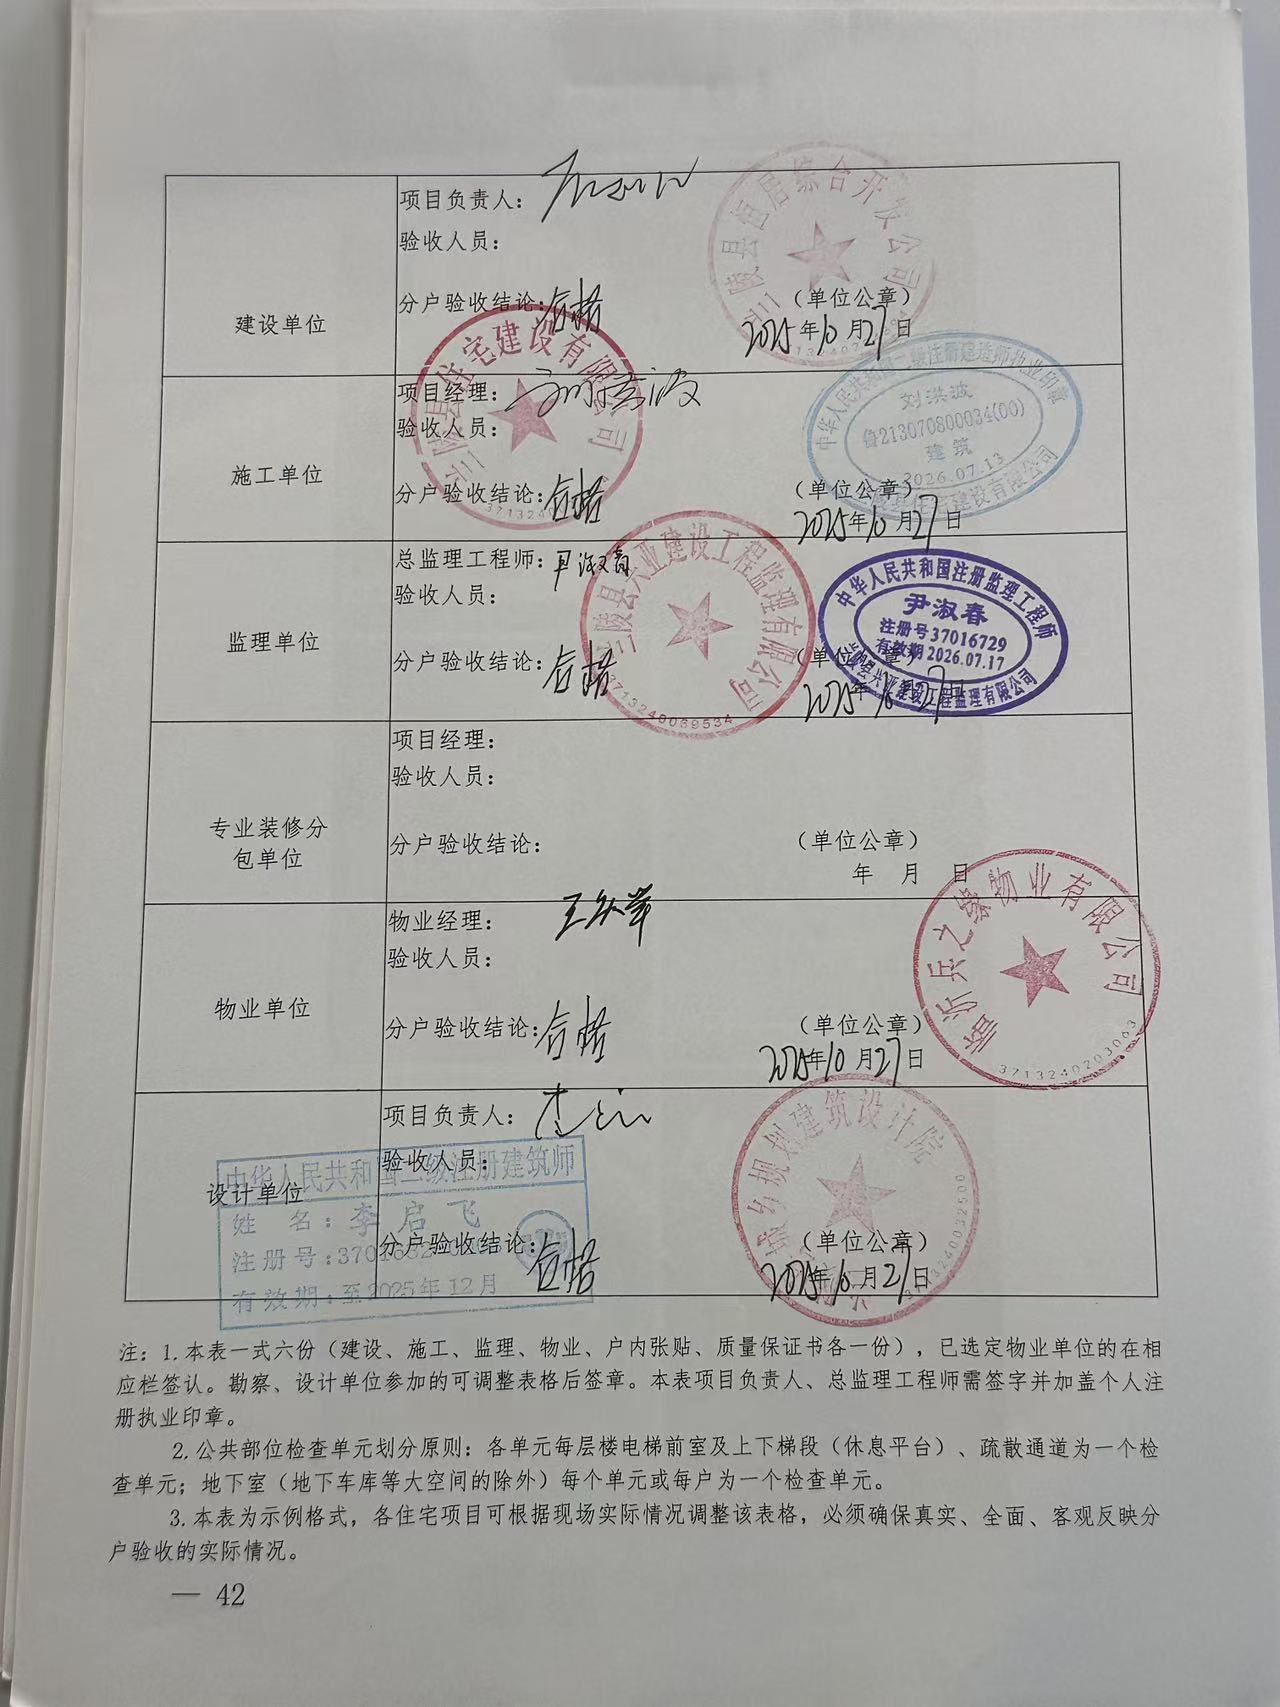 建设单位
项目负责人：
验收人员：
分户验收结论：合格
（单位公章）
2025年10月27日
兰陵县恒居综合开发公司
施工单位
项目经理：刘洪波
验收人员：
分户验收结论：合格
（单位公章）
2025年10月27日
兰陵县住宅建设有限公司
中华人民共和国二级注册建造师执业印章
刘洪波
鲁213070800034(00)
建筑
2026.07.13
监理单位
总监理工程师：尹淑春
验收人员：
分户验收结论：合格
（单位公章）
2025年10月27日
兰陵县兴亚建设工程监理有限公司
3713240069534
中华人民共和国注册监理工程师
尹淑春
注册号37016729
有效期2026.07.17
兰陵县兴亚建设工程监理有限公司
专业装修分
包单位
项目经理：
验收人员：
分户验收结论：
（单位公章）
年 月 日
物业单位
物业经理：
验收人员：
分户验收结论：合格
（单位公章）
2025年10月27日
临沂兵之缘物业有限公司
3713240203063
设计单位
项目负责人：
验收人员：
分户验收结论：合格
（单位公章）
2025年10月27日
城乡规划建筑设计院
3713240032500
中华人民共和国二级注册建筑师
姓 名：李启飞
注册号：
有效期：至2025年12月
注：1.本表一式六份（建设、施工、监理、物业、户内张贴、质量保证书各一份），已选定物业单位的在相
应栏签认。勘察、设计单位参加的可调整表格后签章。本表项目负责人、总监理工程师需签字并加盖个人注
册执业印章。
2.公共部位检查单元划分原则：各单元每层楼电梯前室及上下梯段（休息平台）、疏散通道为一个检
查单元；地下室（地下车库等大空间的除外）每个单元或每户为一个检查单元。
3.本表为示例格式，各住宅项目可根据现场实际情况调整该表格，必须确保真实、全面、客观反映分
户验收的实际情况。
— 42